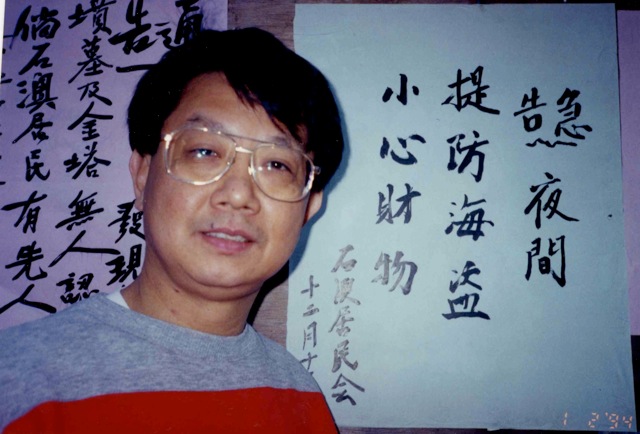 急告
夜間
提防海盜
小心財物
石澳居民会
十二月十
通告
發現
墳墓及金塔無人認
倘石澳居民有先人
1 2 '94